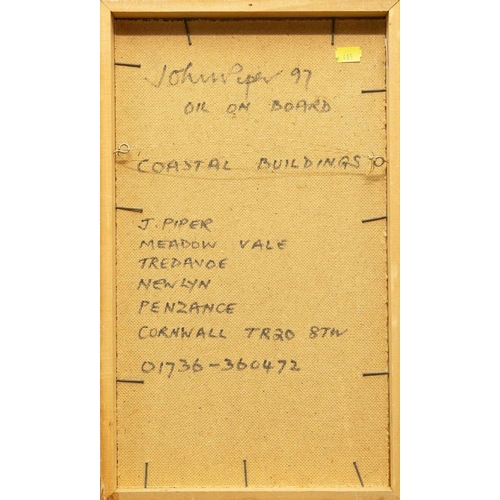 John Piper 97
OIL ON BOARD
COASTAL BUILDINGS
J. PIPER
MEADOW VALE
TREDAVOE
NEWLYN
PENZANCE
CORNWALL TR20 8TW
01736-360472